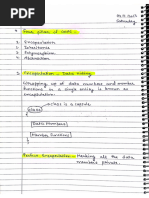 Saturday
Four pillars of OOPS :-
1. Encapsulation
2. Inheritance
3. Polymorphism
4. Abstraction
1. Encapsulation :- Data hiding
Wrapping up of data members and member
functions in a single entity is known as
encapsulation.
class is a capsule
class
{
Data Members
Member Functions
}
Perfect Encapsulation :- Marking all the data
members private.